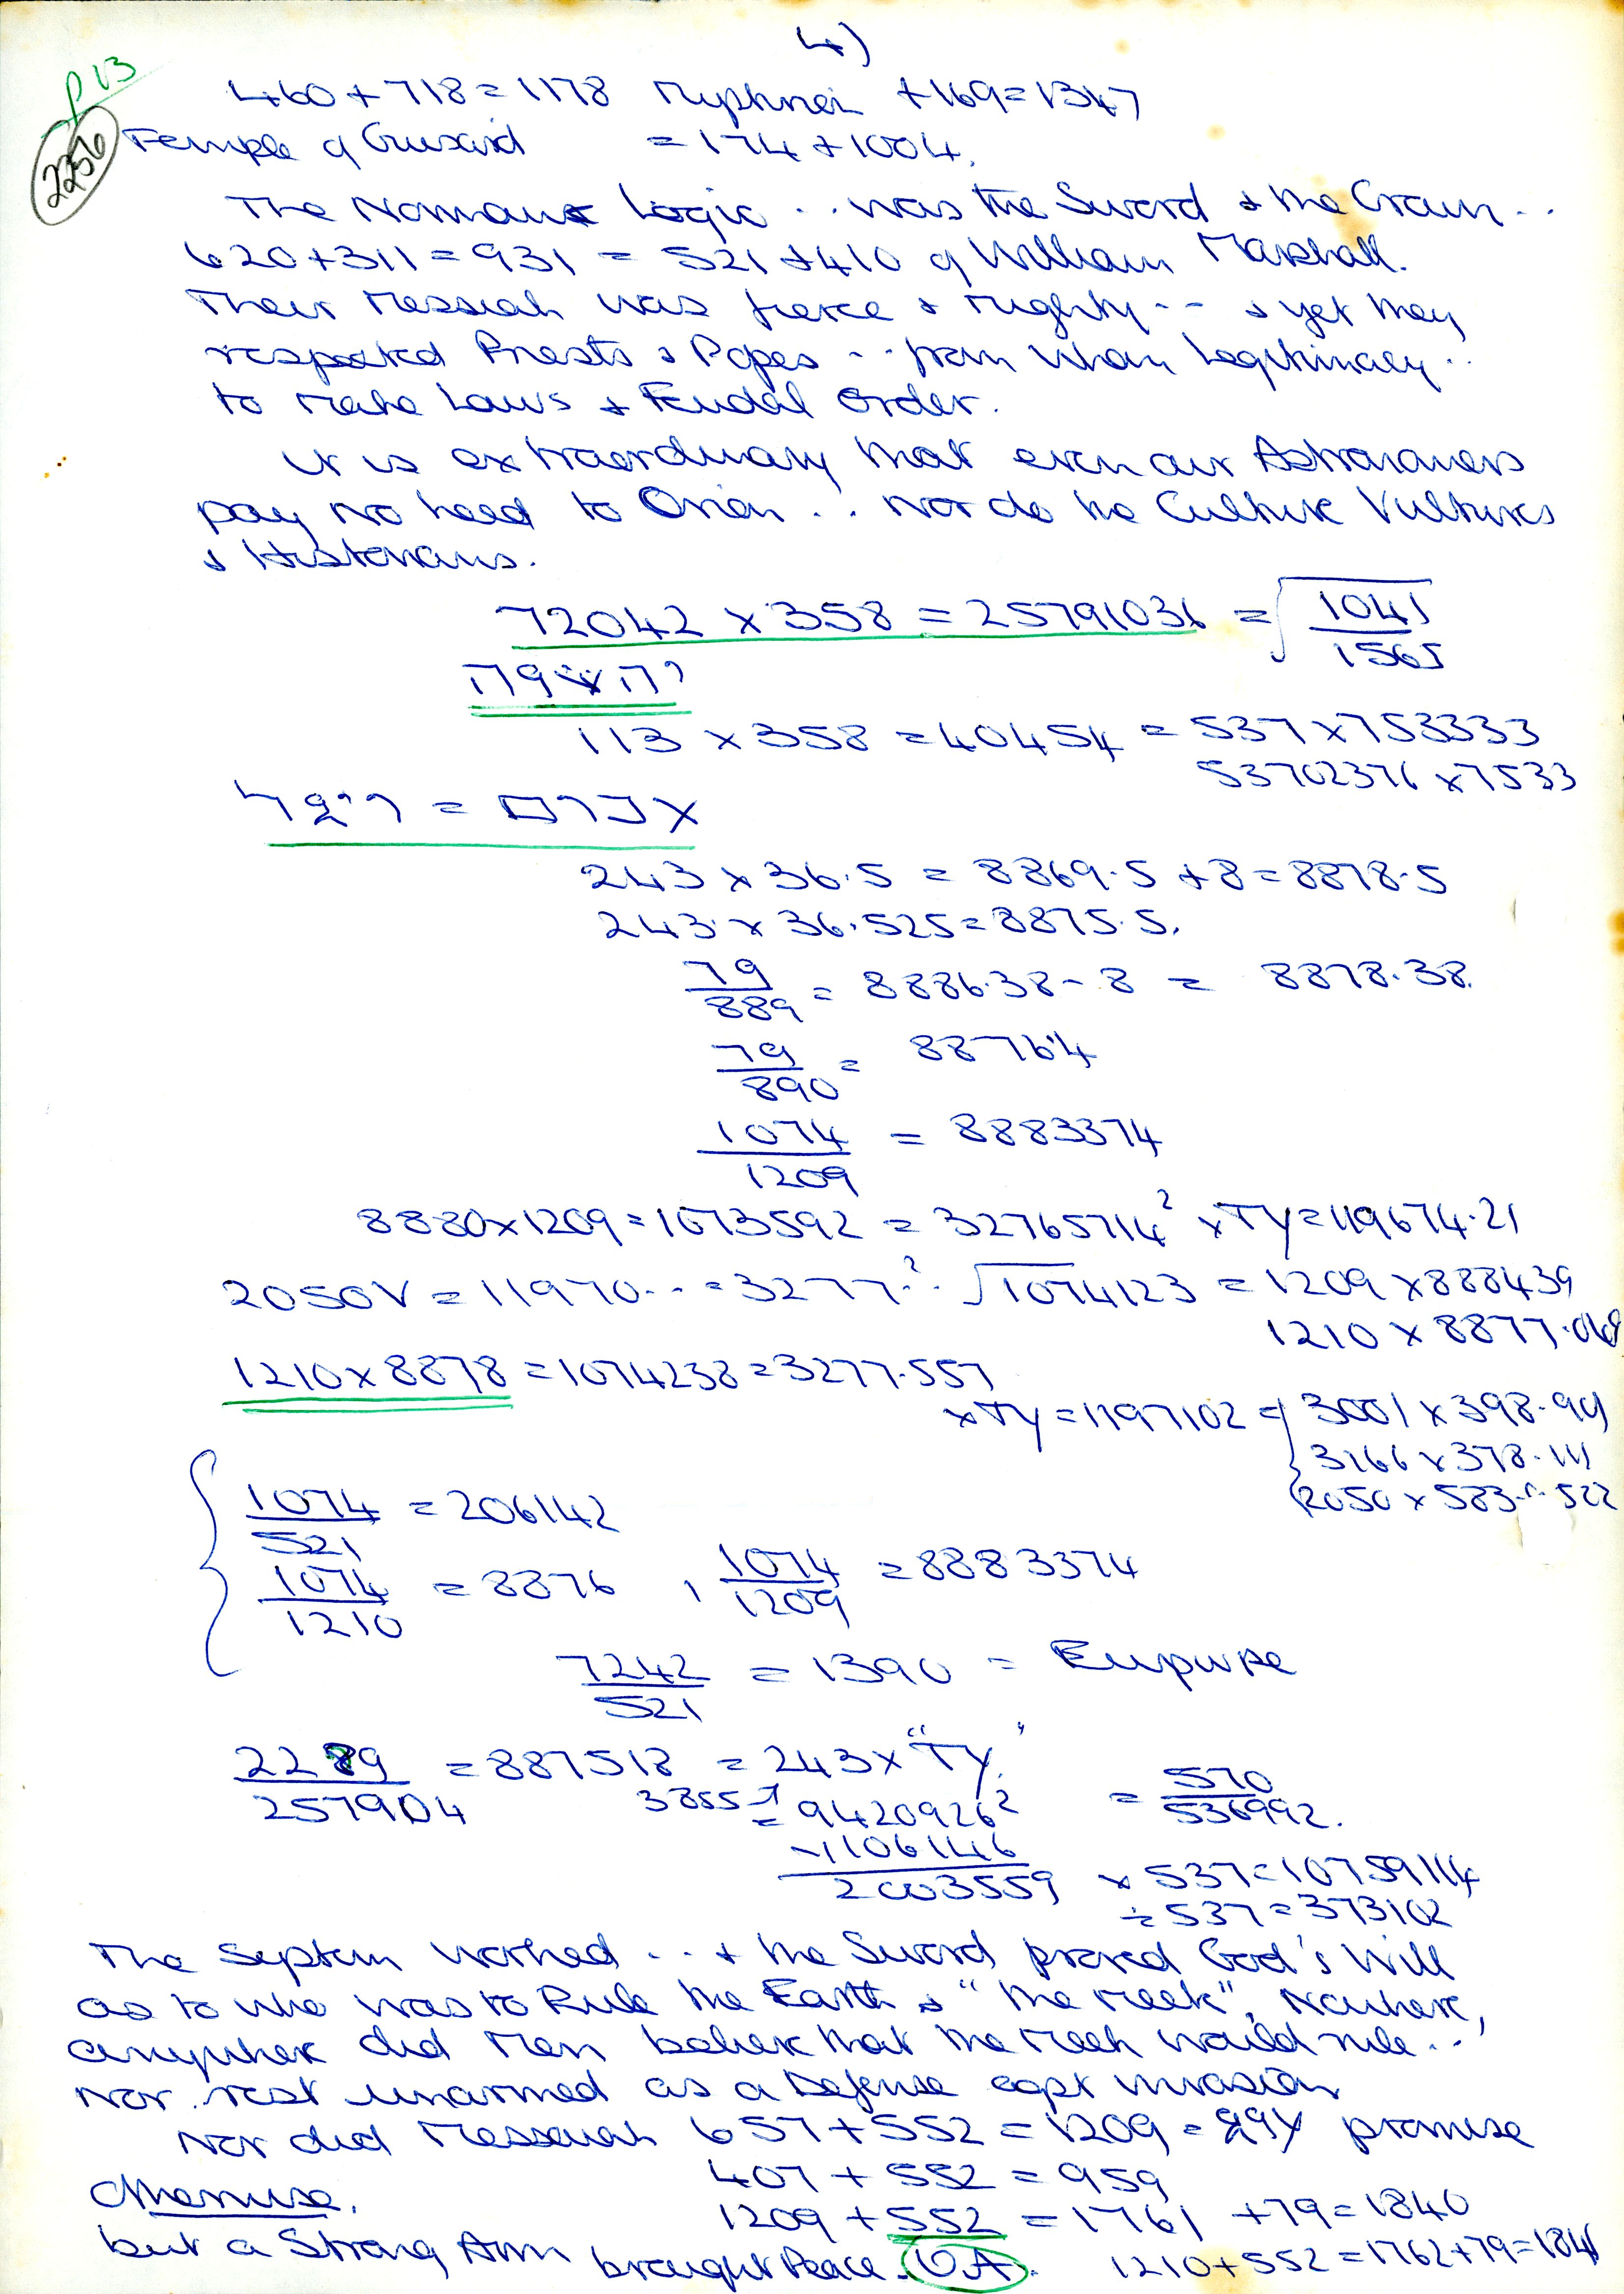 4)
p 13
2256
460+718=1178 +169=1347
Temple of = 174+1004.
The Logic .. was the Sword & the Crown ..
620+311=931 = 521+410 of William Marshall.
Their Messiah was fierce & mighty -- & yet they
respected Priests & Popes -- from whom Legitimacy ..
to make Laws & Feudal Order.
It is extraordinary that even our Astronomers
pay no heed to Orion .. Nor do the Culture Vultures
& Historians.
72042 × 358 = 25791036 = √1041/1565
113 × 358 = 40454 = 537×753333
53702376 × 7533
243 × 36.5 = 8869.5 +8=8878.5
243 × 36.525=8875.5.
79/889 = 8886.38 - 8 = 8878.38.
79/890 = 88764
1074/1209 = 8883374
8880×1209=1073592 = 32765714² ×TY=119674.21
2050V = 11970... = 3277.² √1074123 = 1209 ×888439
1210 × 8877.068
1210×8878 =1074238=3277.557
×TY=1197102 = 3001 × 398.90
3166 × 378.111
2050 × 583.. 522
1074/521 = 206142
1074/1210 = 8876 , 1074/1209 = 8883374
7242/521 = 1390 = Empire
2289/257904 = 887518 = 243× "TY."
3855 = 9420926² = 570/536992.
-11061146
2003559 × 537=10759114
÷ 537 = 373102
The System worked ... & the Sword proved God's Will
as to who was to Rule the Earth & "the meek". Nowhere,
anywhere did Men believe that the Meek would rule ..
Nor rest unarmed as a Defense agst invasion
Nor did Messiah 657+552 = 1209 = promise
407 + 552 = 959
otherwise.
1209 + 552 = 1761 +79=1840
but a Strong Arm brought Peace. O.A. 1210+552=1762+79=1841